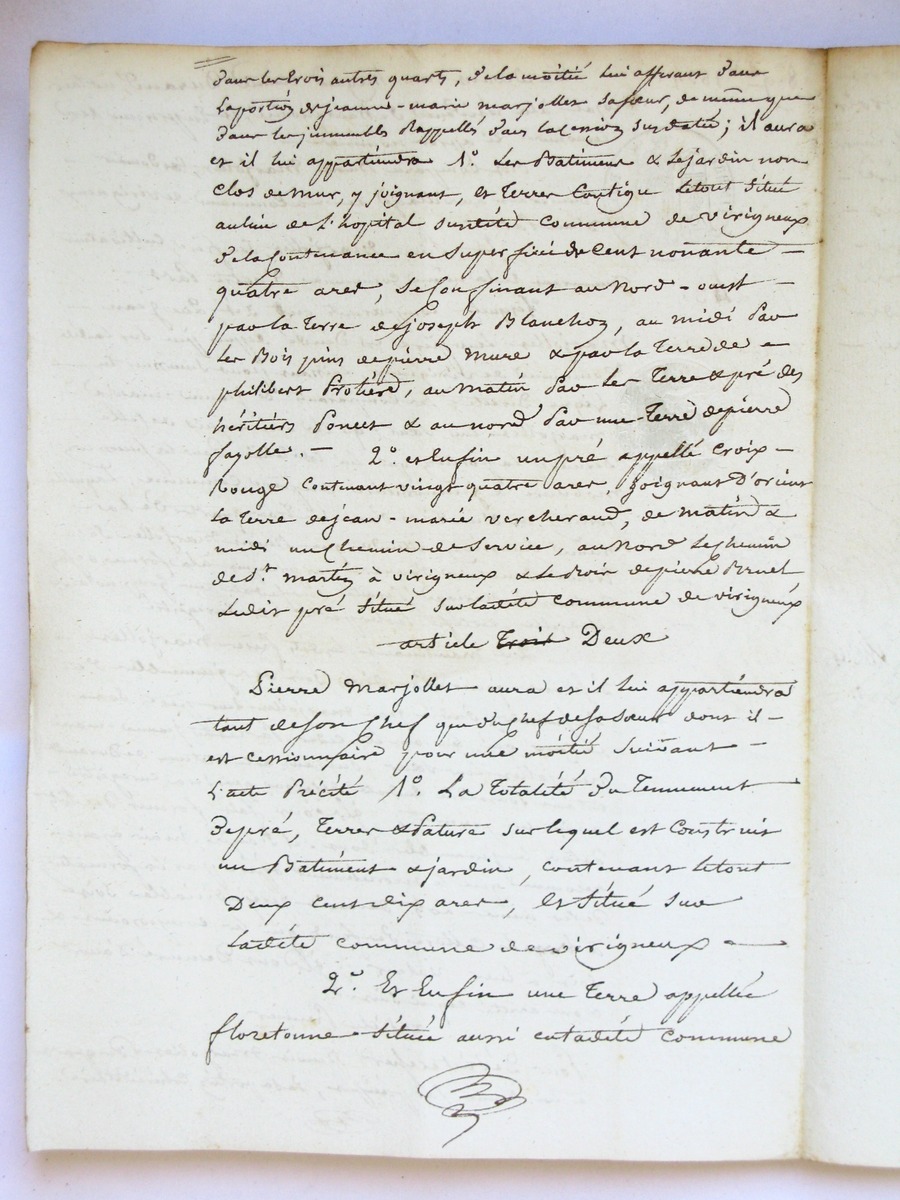 dans les trois autres quarts, de la moitié lui afferant dans
la portion de jeanne-marie marjollet sa sœur, de même que
dans les immeubles Rappellés dans la cession susdatée; il aura
et il lui appartiendra 1º. Les Batiment & le jardin non
clos de mur, y joignant, et Terres Contigue le tout Situé
au lieu de L'hopital susdite Commune de virigneux
de la Contenance en superficie de cent nonante –
quatre ares, se Confinant au Nord-ouest –
par la Terre de joseph Blanchon, au midi Par
les Bois pins de pierre mure & par la Terre de –
philibert Protière, au matin Par les Terre & pré des
héritiers Poncet & au nord Par une Terre de pierre
fayolle. – 2º. et Enfin un pré appellé Croix –
Rouge Contenant vingt quatre ares, joignant D'orient
la Terre de jean-marie vercherand, de matin &
midi un Chemin de Service, au Nord le chemin
de St. martin à virigneux & de soir de pierre Brunel
Ledit pré Situé sur ladite Commune de virigneux
article Trois Deux
Pierre Marjollet aura et il lui appartiendra
tant de son Chef que du Chef de sa sœur dont il –
est cessionnaire pour une moitié Suivant –
L'acte Précité 1º. La Totalité du Tennement
de pré, Terres & Pature sur lequel est Construit
un Batiment & jardin, contenant le tout
Deux cent dix ares, Et Situé sur
ladite commune de virigneux –
2º. Et Enfin une Terre appellée
floretonne Située aussi en ladite Commune